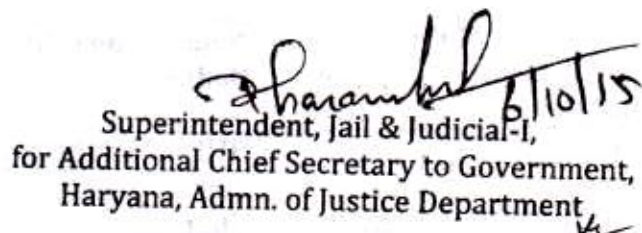 6/10/15
Superintendent, Jail & Judicial-I,
for Additional Chief Secretary to Government,
Haryana, Admn. of Justice Department